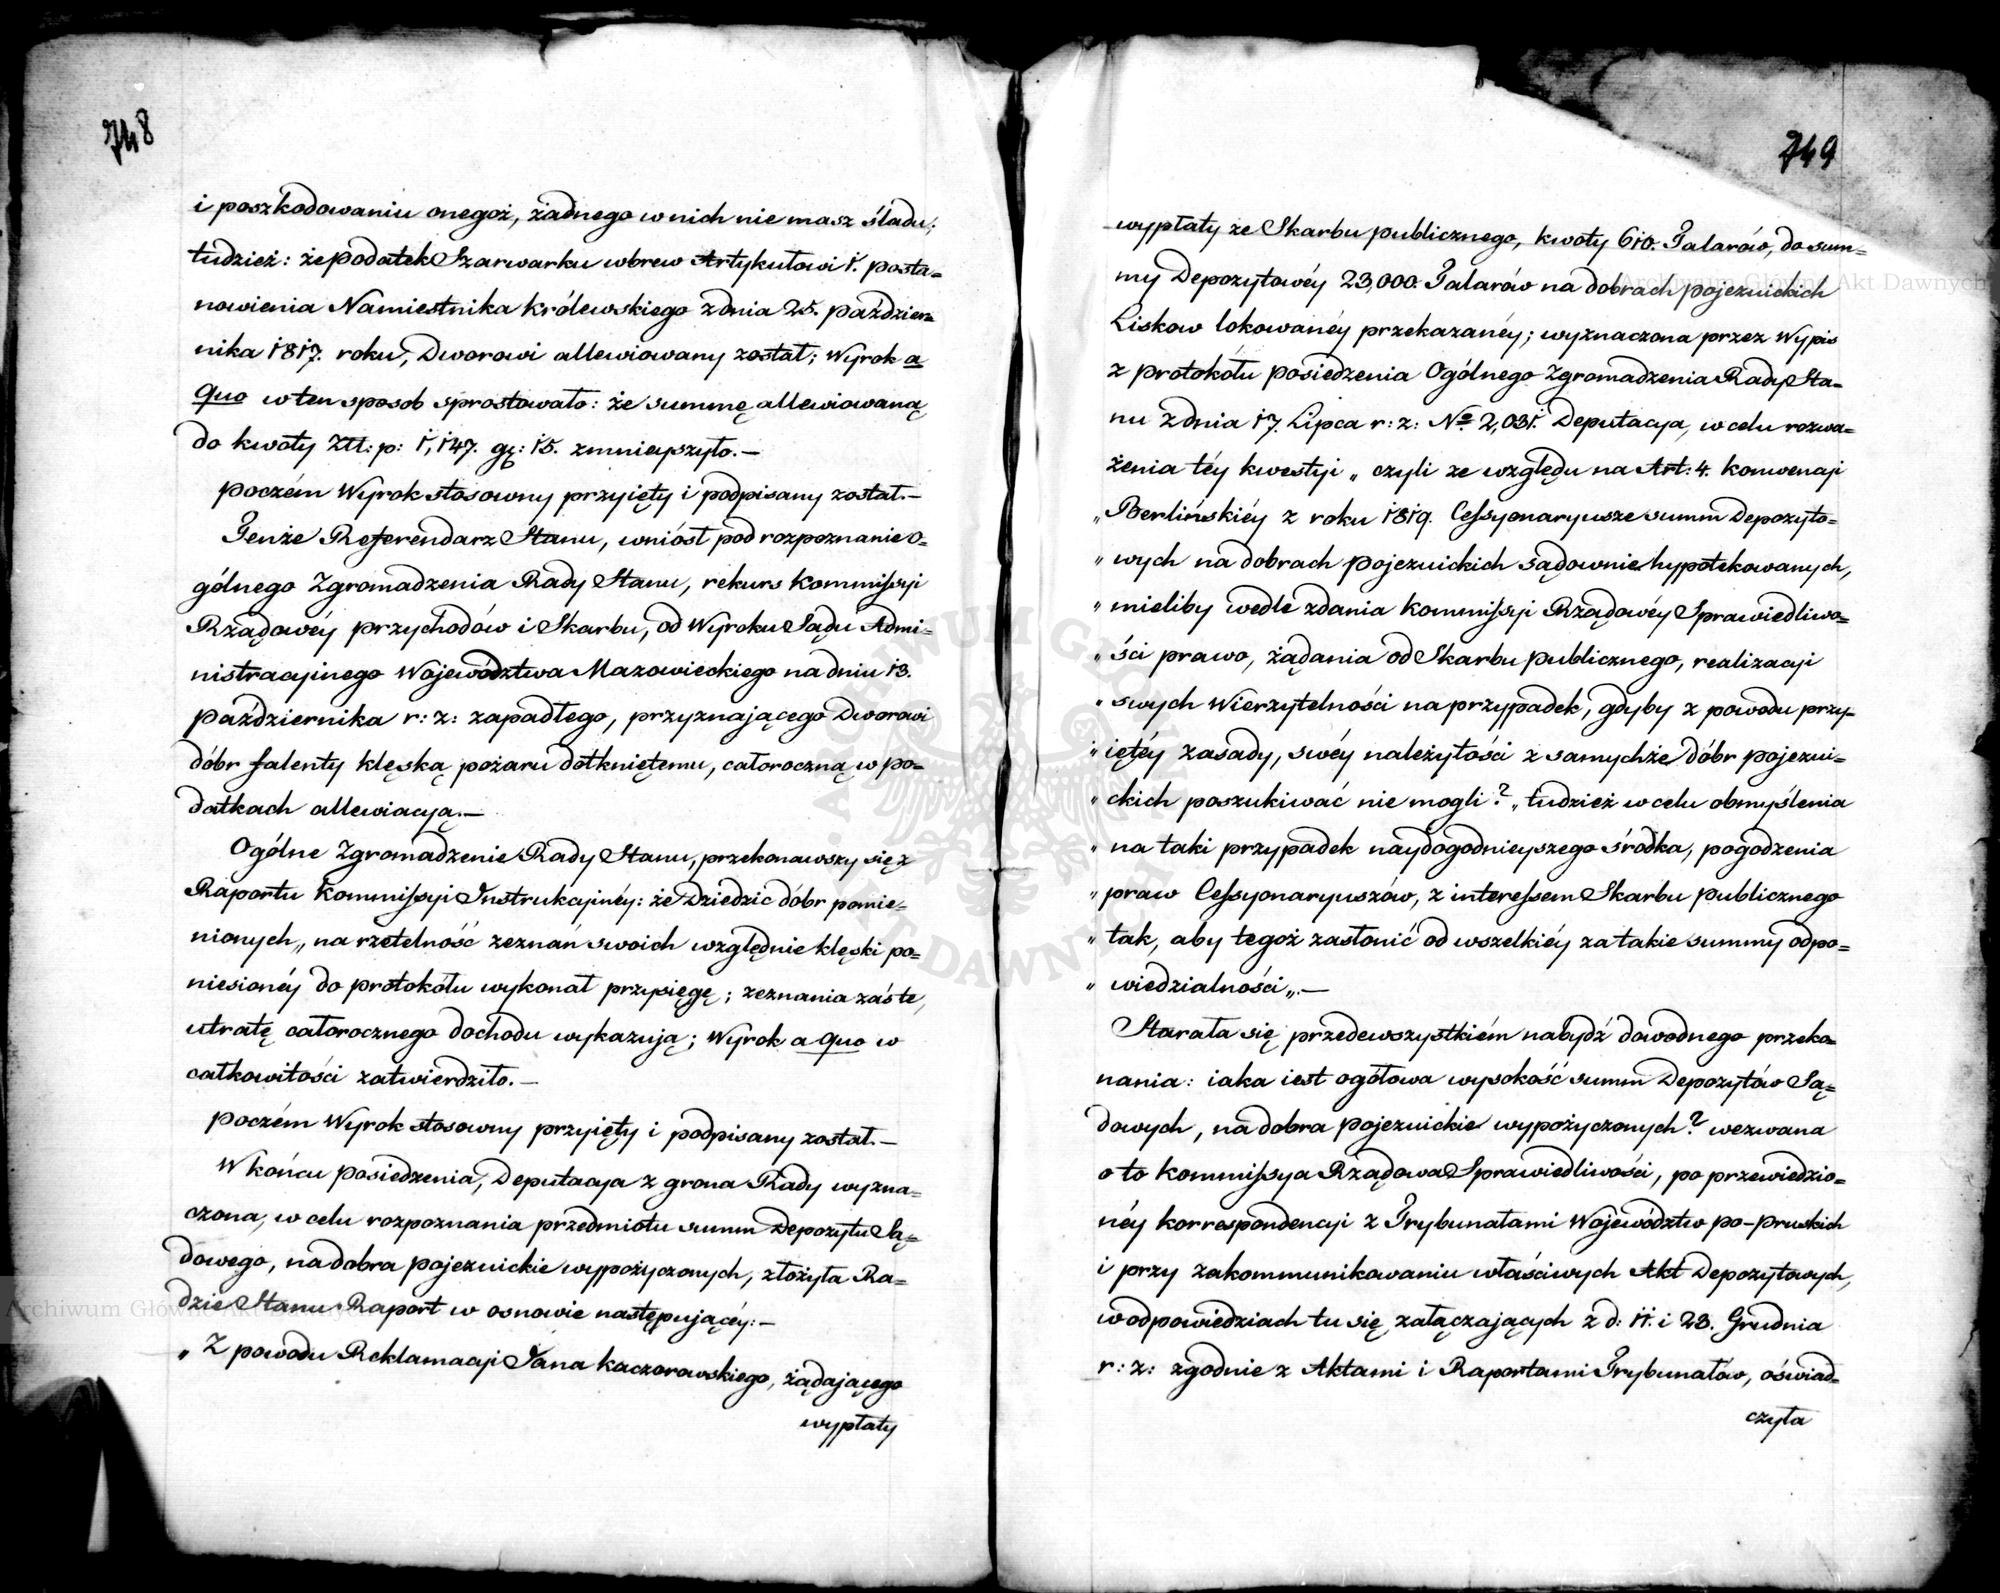 748
i poszkodowaniu onegoż, żadnego w nich nie masz śladu;
tudzież: że podatek Szarwarku wbrew Artykułowi 1. posta=
nowienia Namiestnika Królewskiego z dnia 25. Paździer=
nika 1817. roku, Dworowi allewiowany został; Wyrok a
Quo w ten sposob sprostowało: że summę allewiowaną
do kwoty Złł: p: 1,147. gę: 15. zmnieyszyło.—
Poczém Wyrok stosowny przyięty i podpisany został.—
Tenże Referendarz Stanu, wniósł pod rozpoznanie O=
gólnego Zgromadzenia Rady Stanu, rekurs Kommissyi
Rządowéy Przychodów i Skarbu, od Wyroku Sądu Admi=
nistracyinego Województwa Mazowieckiego na dniu 13.
Października r: z: zapadłego, przyznaiącego Dworowi
dóbr Falenty klęską pożaru dotkniętemu, całoroczną w po=
datkach allewiacyą.—
Ogólne Zgromadzenie Rady Stanu, przekonawszy się z
Raportu Kommissyi Instrukcyinéy: że Dziedzic dóbr pomie=
nionych „ na rzetelność zeznań swoich względnie klęski po=
niesionéy do protokółu wykonał przysięgę; zeznania zaś te,
utratę całorocznego dochodu wykazuią; Wyrok a Quo w
całkowitości zatwierdziło.—
Poczém Wyrok stosowny przyięty i podpisany został.—
W końcu Posiedzenia, Deputacya z grona Rady wyzna=
czona, w celu rozpoznania przedmiotu summ Depozytu Są=
dowego, na dobra pojezuickie wypożyczonych, złożyła Ra=
dzie Stanu Raport w osnowie następuiącéy:—
„ Z powodu Reklamacyi Jana Kaczorowskiego, żądaiącego
wypłaty
749
wypłaty ze Skarbu publicznego, kwoty 610. Talarów, do sum=
my Depozytowéy 23,000. Talarów na dobrach pojezuickich
Liskow lokowanéy przekazanéy; wyznaczona przez Wypis
z protokółu posiedzenia Ogólnego Zgromadzenia Rady Sta=
nu z dnia 17. Lipca r: z: No 2,031. Deputacya, w celu rozwa=
żenia téy kwestyi „ czyli ze względu na Art: 4. Konwencyi
„ Berlińskiéy z roku 1819. Cessyonaryusze summ Depozyto=
„ wych na dobrach pojezuickich sądownie hypotekowanych,
„ mieliby wedle zdania Kommissyi Rządowéy Sprawiedliwo=
„ ści prawo, żądania od Skarbu publicznego, realizacyi
„ swych Wierzytelności na przypadek, gdyby z powodu przy=
„ iętéy zasady, swéy należytości z samychże dóbr pojezui=
„ ckich poszukiwać nie mogli? „ tudzież w celu obmyślenia
„ na taki przypadek naydogodnieyszego środka, pogodzenia
„ praw Cessyonaryuszów, z interessem Skarbu publicznego
„ tak, aby tegoż zasłonić od wszelkiéy za takie summy odpo=
„ wiedzialności „.—
Starała się przedewszystkiém nabydź dowodnego przeko=
nania: iaka iest ogółowa wysokość summ Depozytów Są=
dowych, na dobra pojezuickie wypożyczonych? wezwana
o to Kommissya Rządowa Sprawiedliwości, po przewiedzio=
néy korrespondencyi z Trybunałami Województw po-pruskich
i przy zakommunikowaniu właściwych Akt Depozytowych,
w odpowiedziach tu się załączaiących z d: 11. i 23. Grudnia
r: z: zgodnie z Aktami i Raportami Trybunałów, oświad=
czyła
Archiwum Główne Akt Dawnych
Archiwum Główne Akt Dawnych
ARCHIWUM GŁÓWNE AKT DAWNYCH